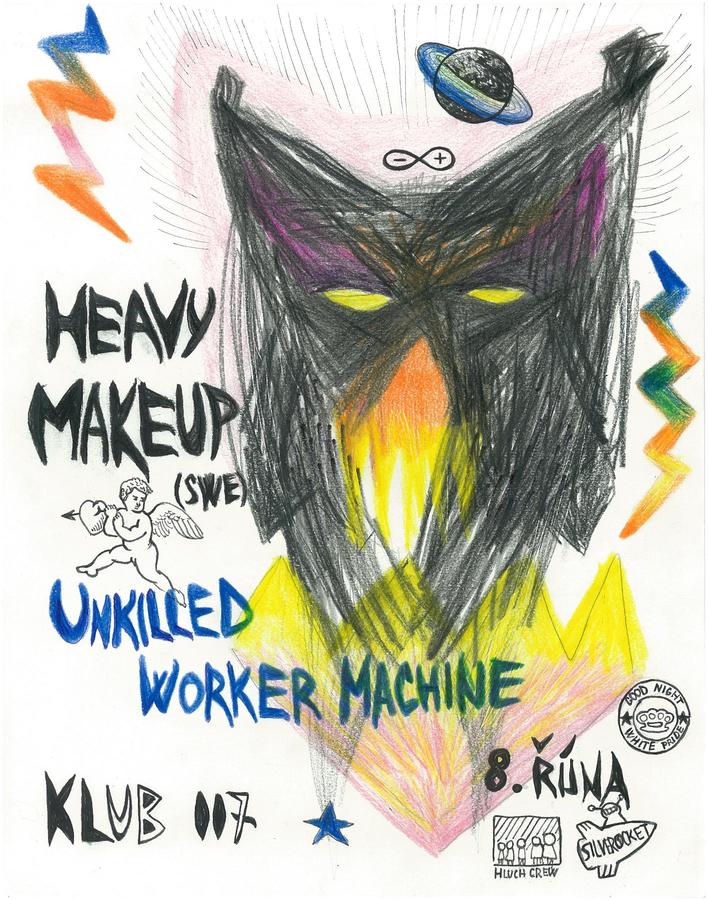 HEAVY
MAKEUP
(SWE)
UNKILLED
WORKER MACHINE
GOOD NIGHT
WHITE PRIDE
8. ŘÍJNA
KLUB 007
HLUCH CREW
SILVER ROCKET